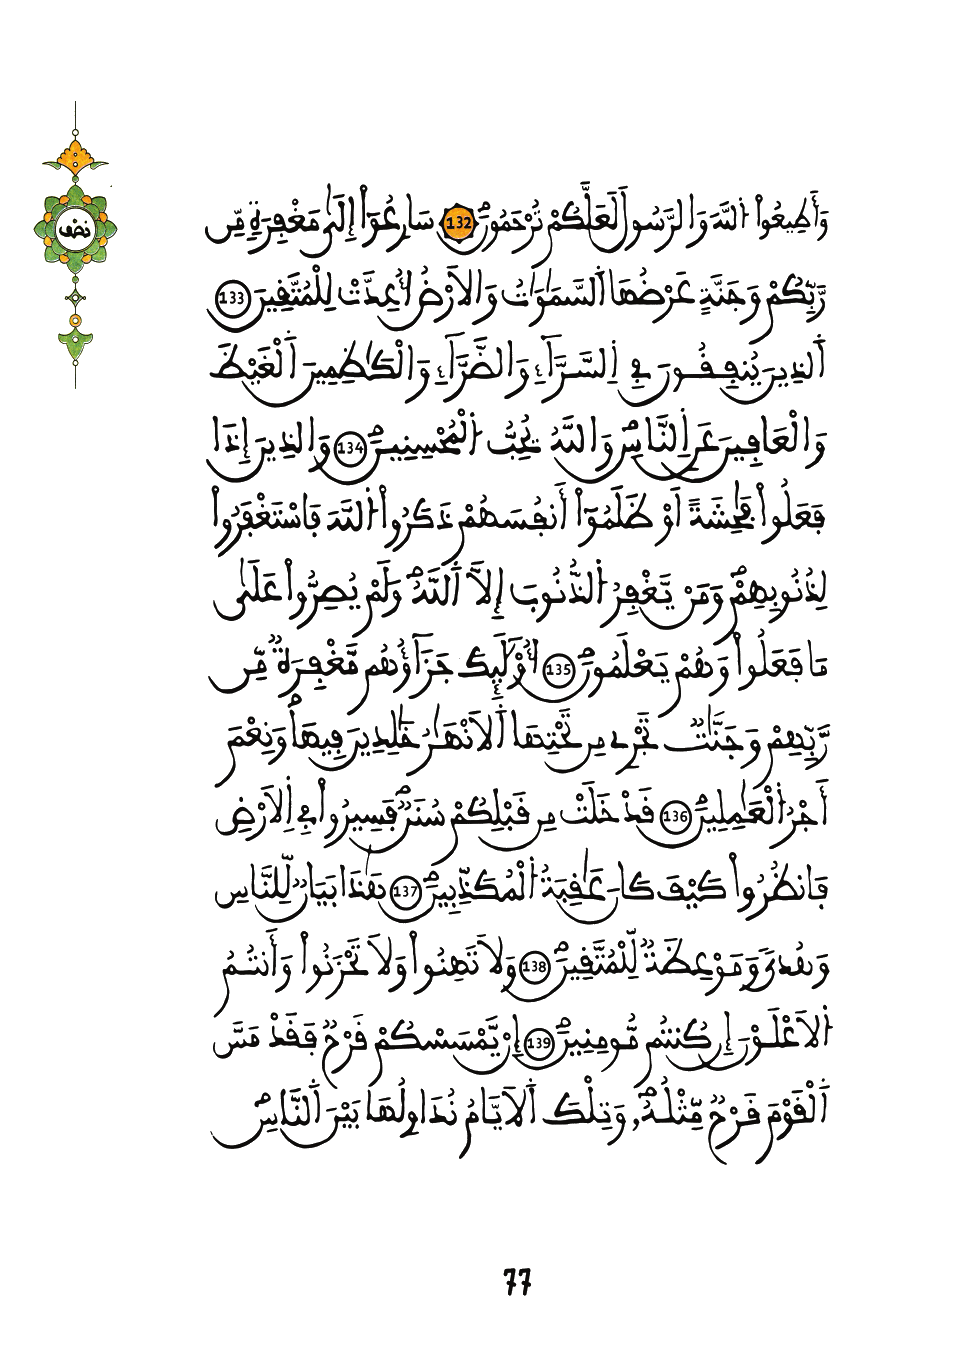 نصف
وَأَطِيعُواْ اُللَّهَ وَالرَّسُولَ لَعَلَّكُمْ تُرْحَمُونَ 132 سَارِعُوٓاْ إِلَىٰ مَغْفِرَةٖ مِّن
رَّبِّكُمْ وَجَنَّةٍ عَرْضُهَا اَلسَّمَٰوَٰتُ وَالَارْضُ أُعِدَّتْ لِلْمُتَّقِينَ 133
اَلذِينَ يُنفِقُونَ فِے اِلسَّرَّآءِ وَالضَّرَّآءِ وَالْكَٰظِمِينَ اَلْغَيْظَ
وَالْعَافِينَ عَنِ اِلنَّاسِ وَاللَّهُ يُحِبُّ اُلْمُحْسِنِينَ 134 وَالذِينَ إِذَا
فَعَلُواْ فَٰحِشَةً اَوْ ظَلَمُوٓاْ أَنفُسَهُمْ ذَكَرُواْ اُللَّهَ فَاسْتَغْفَرُواْ
لِذُنُوبِهِمْ وَمَنْ يَّغْفِرُ اُلذُّنُوبَ إِلَّا اَللَّهُ وَلَمْ يُصِرُّواْ عَلَىٰ
مَا فَعَلُواْ وَهُمْ يَعْلَمُونَ 135 أُوْلَٰٓئِكَ جَزَآؤُهُم مَّغْفِرَةٞ مِّن
رَّبِّهِمْ وَجَنَّٰتٞ تَجْرِے مِن تَحْتِهَا اَلَانْهَٰرُ خَٰلِدِينَ فِيهَا وَنِعْمَ
أَجْرُ اُلْعَٰمِلِينَ 136 قَدْ خَلَتْ مِن قَبْلِكُمْ سُنَنٞ فَسِيرُواْ فِے اِلَارْضِ
فَانظُرُواْ كَيْفَ كَانَ عَٰقِبَةُ اُلْمُكَذِّبِينَ 137 هَٰذَا بَيَانٞ لِّلنَّاسِ
وَهُدىٗ وَمَوْعِظَةٞ لِّلْمُتَّقِينَ 138 وَلَا تَهِنُواْ وَلَا تَحْزَنُواْ وَأَنتُمُ
اُلَاعْلَوْنَ إِن كُنتُم مُّومِنِينَ 139 إِنْ يَّمْسَسْكُمْ قَرْحٞ فَقَدْ مَسَّ
اَلْقَوْمَ قَرْحٞ مِّثْلُهُۥ وَتِلْكَ اَلَايَّامُ نُدَاوِلُهَا بَيْنَ اَلنَّاسِ
77